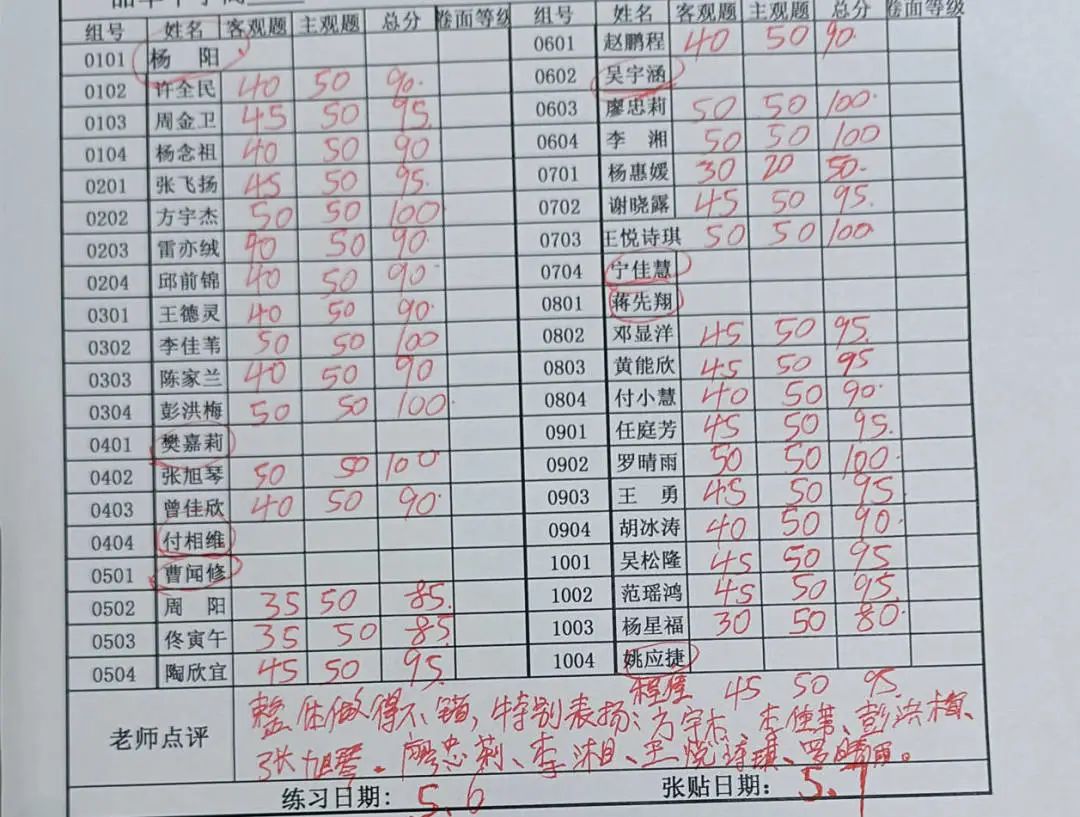 组号 姓名 客观题 主观题 总分 卷面等级 组号 姓名 客观题 主观题 总分 卷面等级
0101 杨 阳
0102 许全民 40 50 90.
0103 周金卫 45 50 95
0104 杨念祖 40 50 90
0201 张飞扬 45 50 95.
0202 方宇杰 50 50 100
0203 雷亦绒 90 50 90.
0204 邱前锦 40 50 90
0301 王德灵 40 50 90.
0302 李佳苇 50 50 100
0303 陈家兰 40 50 90
0304 彭洪梅 50 50 100.
0401 樊嘉莉
0402 张旭琴 50 50 100
0403 曾佳欣 40 50 90.
0404 付相维
0501 曹闻修
0502 周 阳 35 50 85.
0503 佟寅午 35 50 85
0504 陶欣宜 45 50 95.
0601 赵鹏程 40 50 90.
0602 吴宇涵
0603 廖忠莉 50 50 100.
0604 李 湘 50 50 100
0701 杨惠媛 30 20 50.
0702 谢晓露 45 50 95.
0703 王悦诗琪 50 50 100
0704 宁佳慧
0801 蒋先翔
0802 邓显洋 45 50 95.
0803 黄能欣 45 50 95
0804 付小慧 40 50 90.
0901 任庭芳 45 50 95.
0902 罗晴雨 50 50 100.
0903 王 勇 45 50 95
0904 胡冰涛 40 50 90.
1001 吴松隆 45 50 95
1002 范瑶鸿 45 50 95.
1003 杨星福 30 50 80.
1004 姚应捷
45 50 95
老师点评
整体做得不错，特别表扬：方宇杰、李佳苇、彭洪梅、
张旭琴、廖忠莉、李湘、王悦诗琪、罗晴雨。
练习日期: 5.6 张贴日期: 5.7